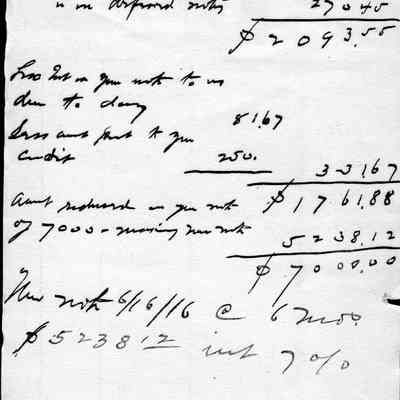 " on deferred note 270 45
$ 2093.55
Less Int on your note to us
due to day 81.67
Less amt paid to your
credit 250. 331.67
Amt reduced on your note $ 1761.88
of 7000 - making new note 5238.12
$ 7000.00
New note 6/16/16 @ 6 mos.
$5238 12 int 7%